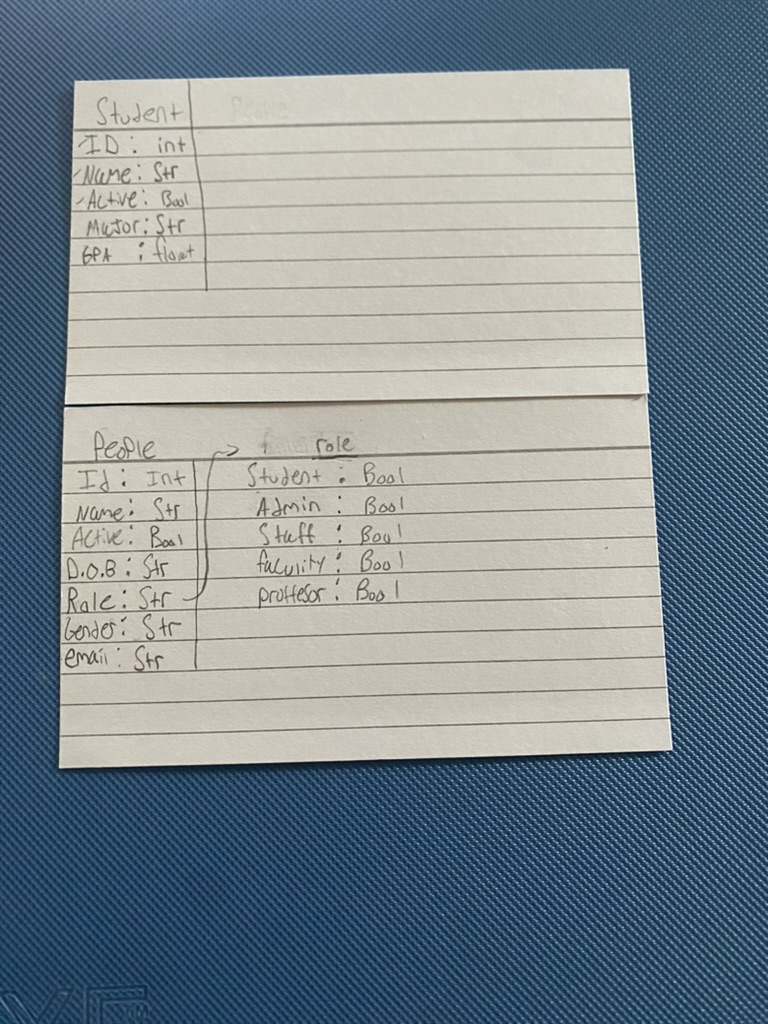 Student
ID : int
Name : Str
Active : Bool
Major : Str
GPA : float
People
Id : Int
Name : Str
Active : Bool
D.O.B : Str
Role : Str
Gender : Str
email : Str
role
Student : Bool
Admin : Bool
Staff : Bool
faculity : Bool
proffesor : Bool